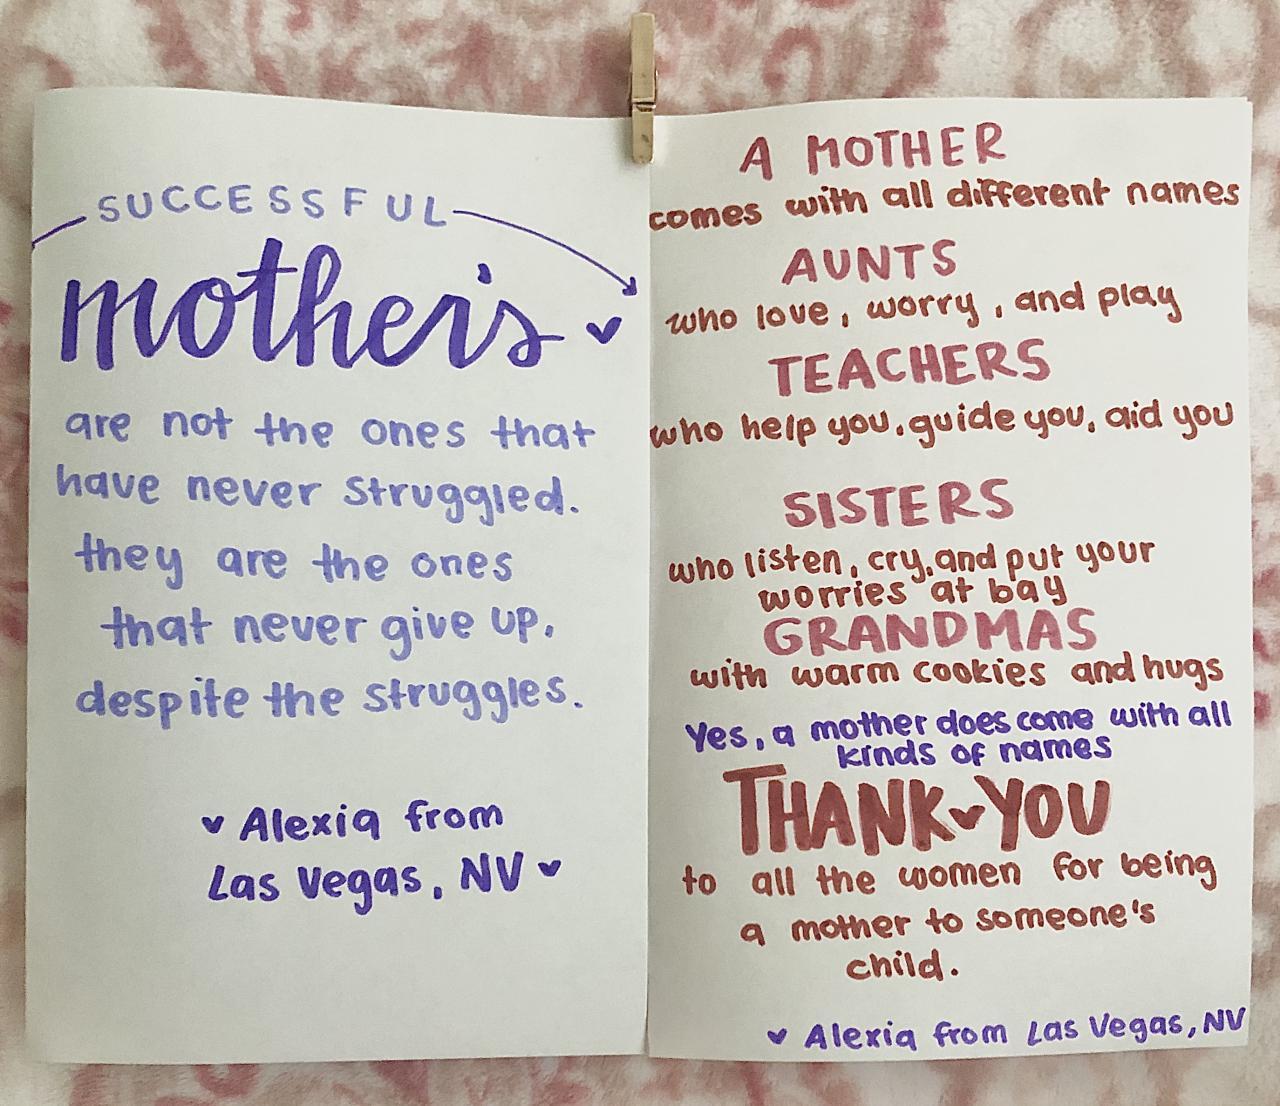 SUCCESSFUL
mother's
are not the ones that
have never struggled.
they are the ones
that never give up,
despite the struggles.
♥ Alexia from
Las Vegas, NV ♥
A MOTHER
comes with all different names
AUNTS
who love, worry, and play
TEACHERS
who help you, guide you, aid you
SISTERS
who listen, cry, and put your
worries at bay
GRANDMAS
with warm cookies and hugs
Yes, a mother does come with all
kinds of names
THANK♥YOU
to all the women for being
a mother to someone's
child.
♥ Alexia from Las Vegas, NV